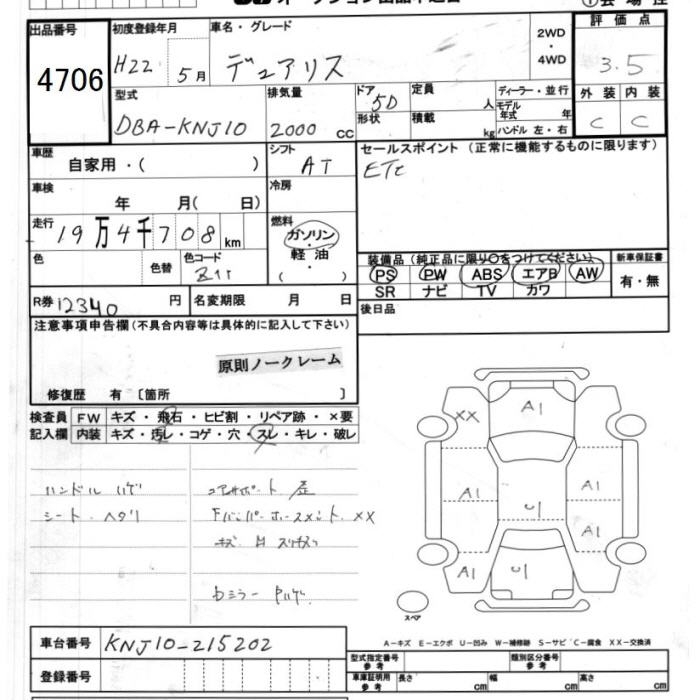 出品番号 4706
初度登録年月 H22 5月
車名・グレード デュアリス
2WD・4WD
評価点 3.5
型式 DBA-KNJ10
排気量 2000 CC
ドア 5D
形状
定員 人
積載 kg
ディーラー・並行
モデル年式 年
ハンドル 左・右
外装 C 内装 C
車歴 自家用・( )
シフト AT
セールスポイント (正常に機能するものに限ります)
ETC
車検 年 月( 日)
冷房
走行 19万4千708km
燃料 ガソリン・軽油・( )
色 色替 色コード
装備品 (純正品に限り○をつけてください)
新車保証書
PS PW ABS エアB AW
有・無
SR ナビ TV カワ
R券 12340 円 名変期限 月 日
後日品
注意事項申告欄 (不具合内容等は具体的に記入して下さい)
原則ノークレーム
修復歴 有 〔箇所 〕
検査員 FW キズ・飛石・ヒビ割・リペア跡・×要
記入欄 内装 キズ・汚レ・コゲ・穴・スレ・キレ・破レ
ハンドル ハゲ
コアサポート 歪
シート・ヘタリ
XX
キズ
ミラー
XX A1
A1 A1
U A1
A1 U
スペア
A-キズ E-エクボ U-凹み W-補修跡 S-サビ C-腐食 XX-交換済
車台番号 KNJ10-215202
型式指定番号 参考
類別区分番号 参考
登録番号
車庫証明用 参考 長さ cm 幅 cm 高さ cm